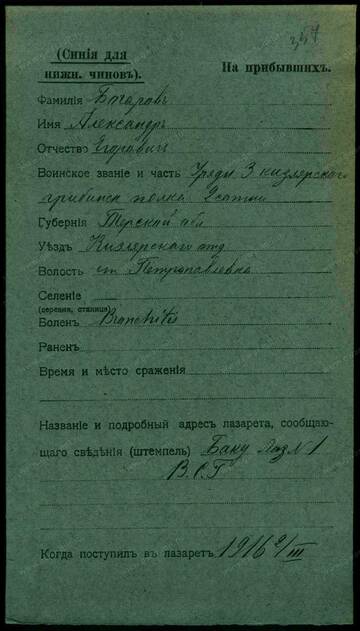 347
(Синія для
нижн. чиновъ).
На прибывшихъ.
Фамилія Бтаровъ
Имя Александръ
Отчество Егоровичъ
Воинское званіе и часть Уряд 3 Кизлярскаго
полка 2 сотни
Губернія Терской обл
Уѣздъ Кизлярскаго отд
Волость ст Петропавловка
Селеніе
(деревня, станица)
Боленъ Bronchitis
Раненъ
Время и мѣсто сраженія
Названіе и подробный адресъ лазарета, сообщаю-
щаго свѣдѣнія (штемпель) Баку Лаз № 1
В.С.Г
Когда поступилъ въ лазаретъ 1916 2/III